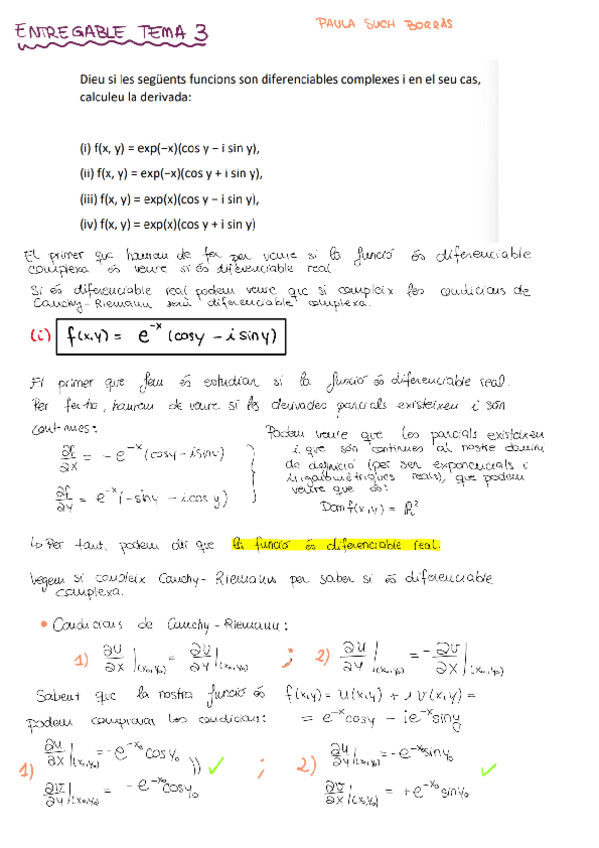 ENTREGABLE TEMA 3
PAULA SUCH BORRÀS
Dieu si les següents funcions son diferenciables complexes i en el seu cas,
calculeu la derivada:
(i) f(x, y) = exp(−x)(cos y − i sin y),
(ii) f(x, y) = exp(−x)(cos y + i sin y),
(iii) f(x, y) = exp(x)(cos y − i sin y),
(iv) f(x, y) = exp(x)(cos y + i sin y)
El primer que hauriem de fer per veure si la funció és diferenciable
complexa és veure si és diferenciable real.
Si és diferenciable real podem veure que si compleix les condicions de
Cauchy-Riemann serà diferenciable complexa.
(i) f(x,y) = e^-x (cosy - i siny)
El primer que fem és estudiar si la funció és diferenciable real.
Per fer-ho, hauriem de veure si les derivades parcials existeixen i són
contínues:
∂f/∂x = -e^-x (cosy - isiny)
∂f/∂y = e^-x (-siny - i cosy)
Podem veure que les parcials existeixen
i que són contínues al nostre domini
de definició (per ser exponencials i
trigonomètriques reals), que podem
veure que és:
Dom f(x,y) = ℝ²
↳ Per tant, podem dir que la funció és diferenciable real.
Vegem si compleix Cauchy-Riemann per saber si és diferenciable
complexa.
• Condicions de Cauchy-Riemann:
1) ∂u/∂x|(x₀,y₀) = ∂v/∂y|(x₀,y₀) ; 2) ∂u/∂y|(x₀,y₀) = -∂v/∂x|(x₀,y₀)
Sabent que la nostra funció és f(x,y) = u(x,y) + i v(x,y) =
podem comprovar les condicions: = e^-x cosy - ie^-x siny
1) ∂u/∂x|(x₀,y₀) = -e^-x₀ cosy₀ ✓ ; 2) ∂u/∂y|(x₀,y₀) = -e^-x₀ siny₀ ✓
∂v/∂y|(x₀,y₀) = -e^-x₀ cosy₀ ∂v/∂x|(x₀,y₀) = +e^-x₀ siny₀